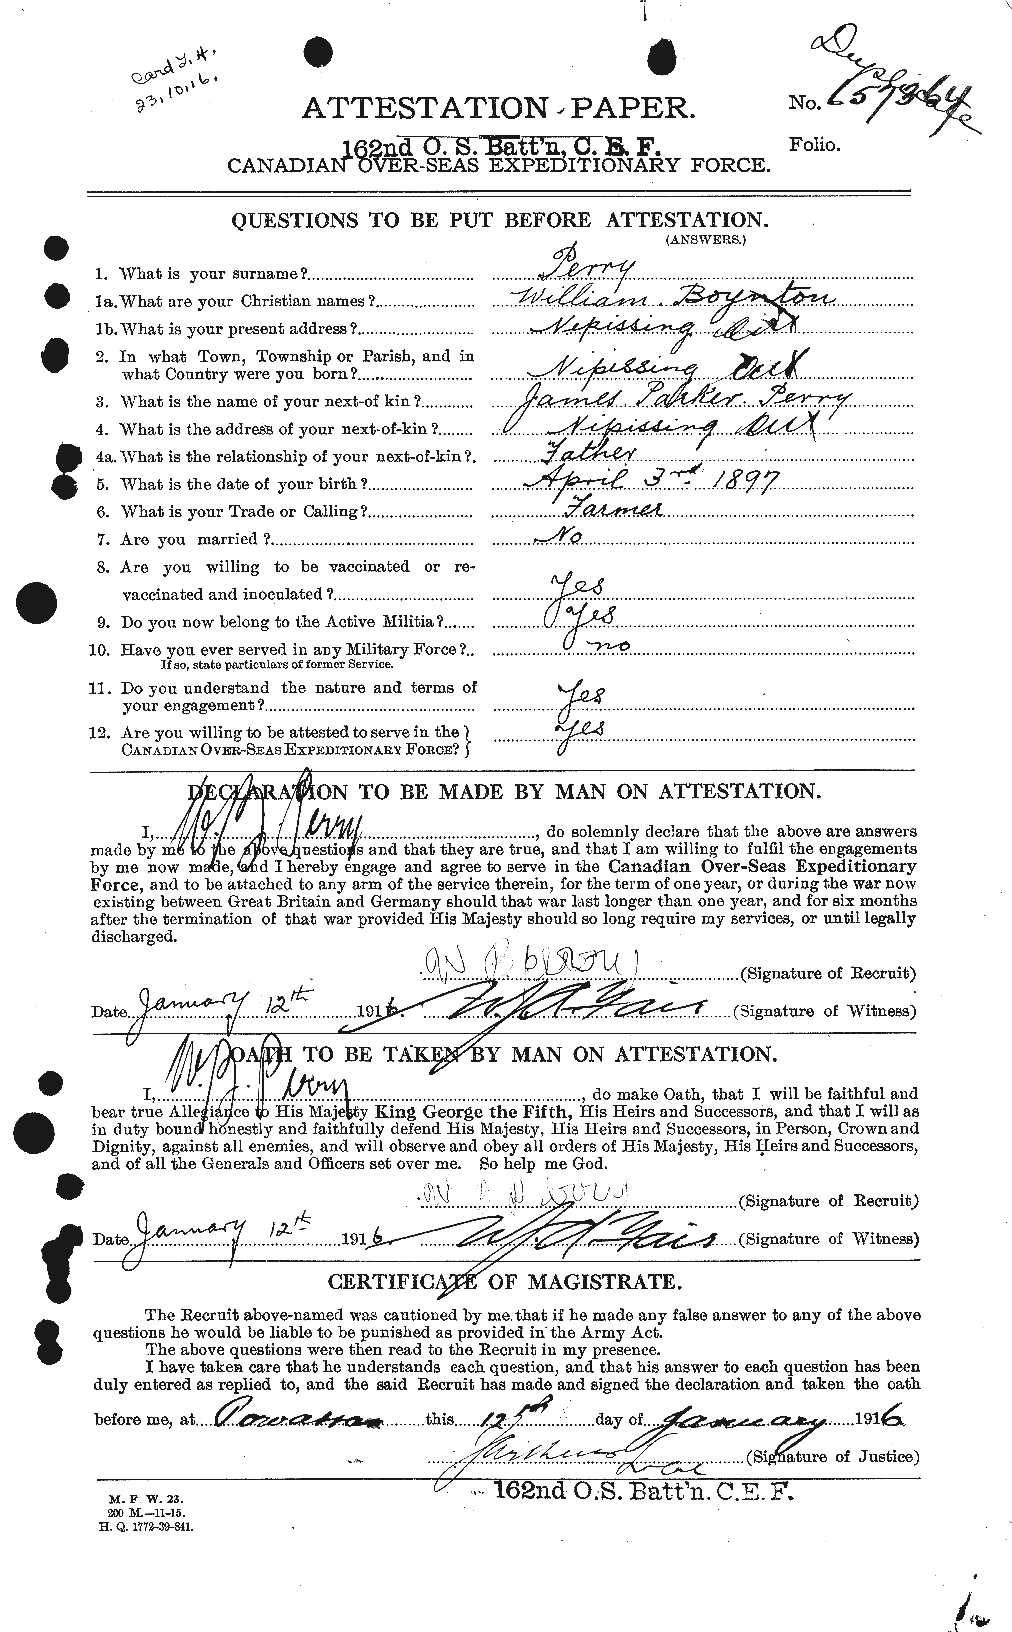 Card T.H.
23,10,16.
Duplicate
ATTESTATION PAPER.
No. 657364
162nd O. S. Batt'n, C. E. F.
Folio.
CANADIAN OVER-SEAS EXPEDITIONARY FORCE.
QUESTIONS TO BE PUT BEFORE ATTESTATION.
(ANSWERS.)
1. What is your surname? Perry
1a. What are your Christian names? William Boynton
1b. What is your present address? Nipissing Ont
2. In what Town, Township or Parish, and in
what Country were you born? Nipissing Ont
3. What is the name of your next-of kin? James Parker Perry
4. What is the address of your next-of-kin? Nipissing Ont
4a. What is the relationship of your next-of-kin? Father
5. What is the date of your birth? April 3rd 1897
6. What is your Trade or Calling? Farmer
7. Are you married? No
8. Are you willing to be vaccinated or re-
vaccinated and inoculated? Yes
9. Do you now belong to the Active Militia? Yes
10. Have you ever served in any Military Force? no
If so, state particulars of former Service.
11. Do you understand the nature and terms of
your engagement? Yes
12. Are you willing to be attested to serve in the
CANADIAN OVER-SEAS EXPEDITIONARY FORCE? Yes
DECLARATION TO BE MADE BY MAN ON ATTESTATION.
I, Perry, do solemnly declare that the above are answers
made by me to the above questions and that they are true, and that I am willing to fulfil the engagements
by me now made, and I hereby engage and agree to serve in the Canadian Over-Seas Expeditionary
Force, and to be attached to any arm of the service therein, for the term of one year, or during the war now
existing between Great Britain and Germany should that war last longer than one year, and for six months
after the termination of that war provided His Majesty should so long require my services, or until legally
discharged.
(Signature of Recruit)
Date January 12th 1916 (Signature of Witness)
OATH TO BE TAKEN BY MAN ON ATTESTATION.
I, Perry, do make Oath, that I will be faithful and
bear true Allegiance to His Majesty King George the Fifth, His Heirs and Successors, and that I will as
in duty bound honestly and faithfully defend His Majesty, His Heirs and Successors, in Person, Crown and
Dignity, against all enemies, and will observe and obey all orders of His Majesty, His Heirs and Successors,
and of all the Generals and Officers set over me. So help me God.
(Signature of Recruit)
Date January 12th 1916 (Signature of Witness)
CERTIFICATE OF MAGISTRATE.
The Recruit above-named was cautioned by me that if he made any false answer to any of the above
questions he would be liable to be punished as provided in the Army Act.
The above questions were then read to the Recruit in my presence.
I have taken care that he understands each question, and that his answer to each question has been
duly entered as replied to, and the said Recruit has made and signed the declaration and taken the oath
before me, at Powassan this 12th day of January 1916
(Signature of Justice)
162nd O.S. Batt'n. C.E.F.
M. F. W. 23.
200 M.—11-15.
H. Q. 1772-39-841.